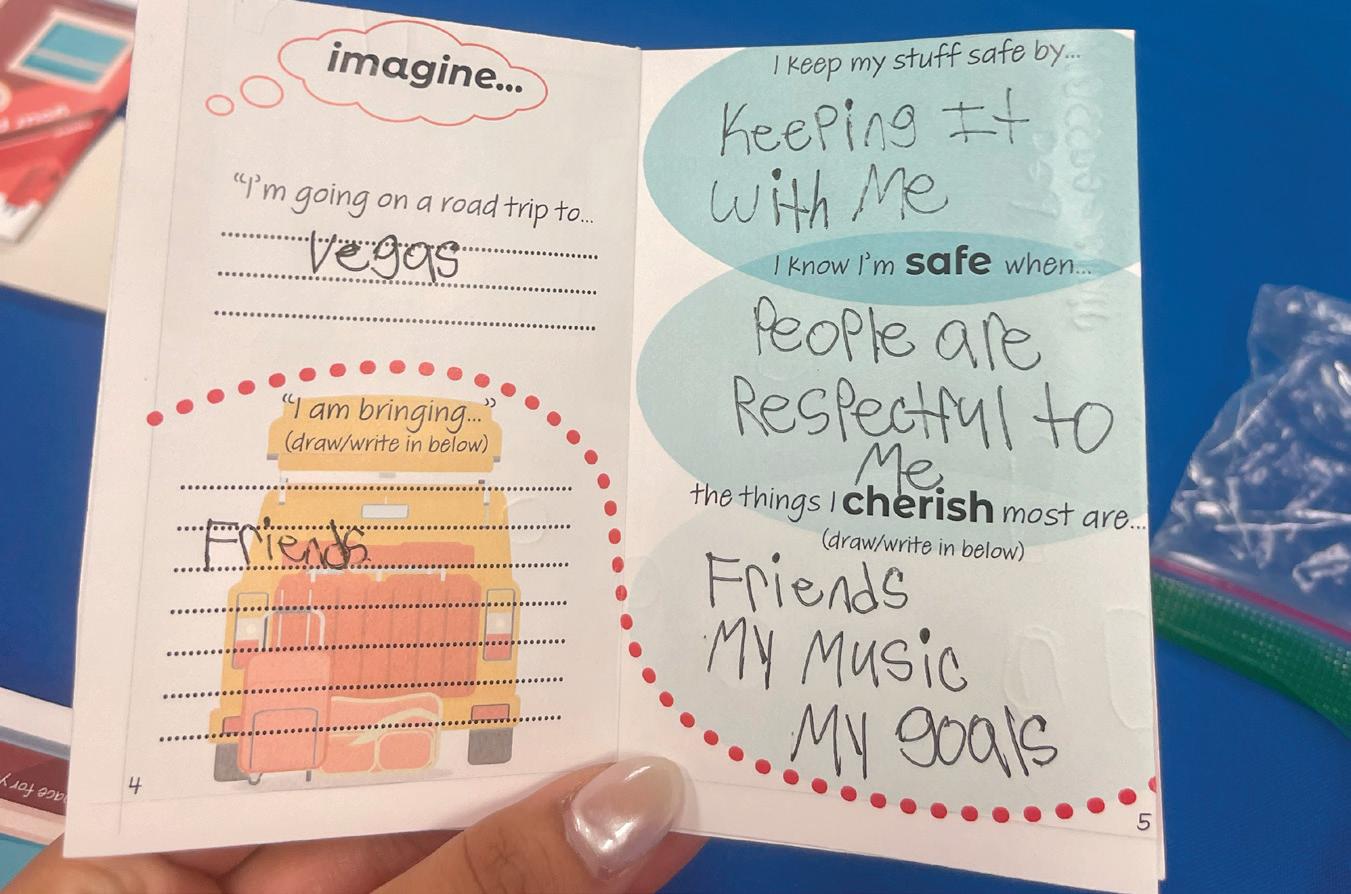 imagine...
“I'm going on a road trip to...
Vegas
“I am bringing...”
(draw/write in below)
Friends
4
I keep my stuff safe by...
Keeping It
with Me
I know I'm safe when...
People are
Respectful to
Me
the things I cherish most are...
(draw/write in below)
Friends
My Music
My goals
5